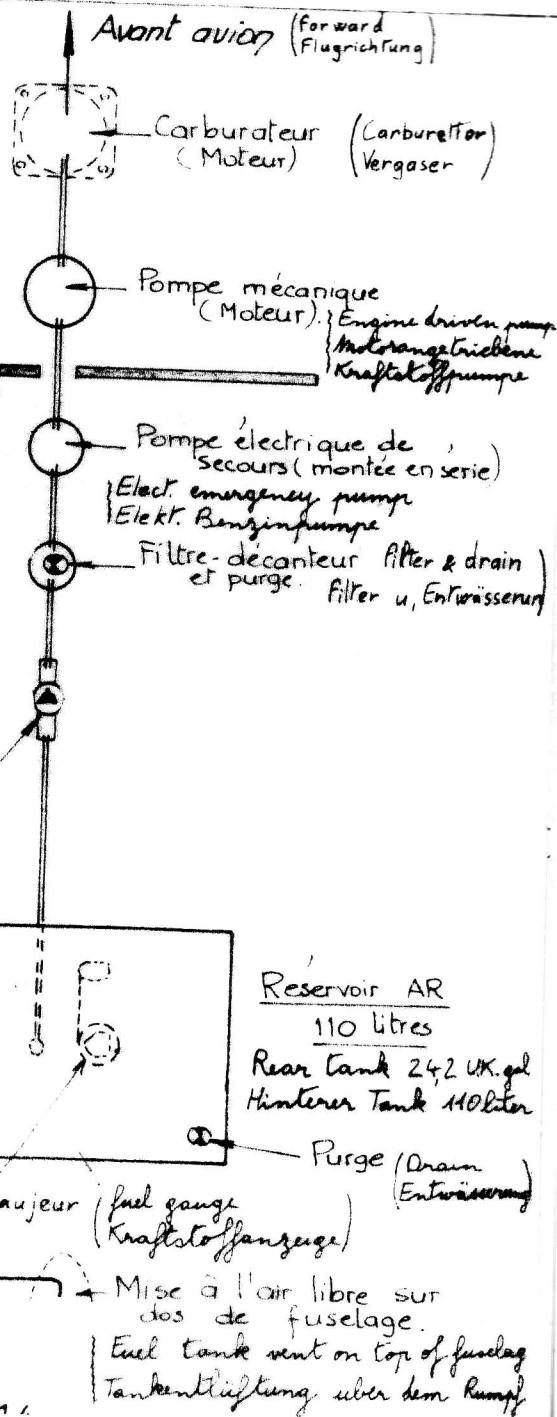 Avant avion (forward
Flugrichtung)
Carburateur (Carburettor)
(Moteur) Vergaser
Pompe mécanique
(Moteur).
Engine driven pump
Motorangetriebene
Kraftstoffpumpe
Pompe électrique de
secours (montée en série)
Elect. emergency pump
Elekt. Benzinpumpe
Filtre-décanteur filter & drain
et purge. filter u, Entwässerun
Réservoir AR
110 litres
Rear tank 24,2 UK.gal
Hinterer Tank 110 liter
Purge (Drain
Entwässerung)
aujeur (fuel gauge
Kraftstoffanzeuge)
Mise à l'air libre sur
dos de fuselage.
Fuel tank vent on top of fuselag
Tankentlüftung uber dem Rumpf